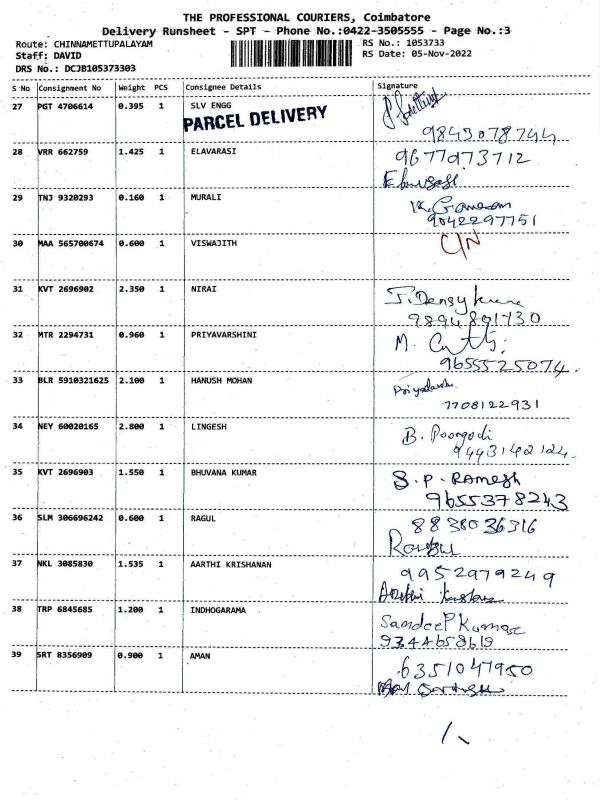 THE PROFESSIONAL COURIERS, Coimbatore
Delivery Runsheet - SPT - Phone No.:0422-3505555 - Page No.:3
Route: CHINNAMETTUPALAYAM RS No.: 1053733
Staff: DAVID RS Date: 05-Nov-2022
DRS No.: DCJB105373303
S No Consignment No Weight PCS Consignee Details Signature
27 PGT 4706614 0.395 1 SLV ENGG
PARCEL DELIVERY
9843078744
28 VRR 662759 1.425 1 ELAVARASI 9677973712
29 TNJ 9320293 0.160 1 MURALI
9042297751
30 MAA 565700674 0.600 1 VISWAJITH C/N
31 KVT 2696902 2.350 1 NIRAI
9894891730
32 MTR 2294731 0.960 1 PRIYAVARSHINI M.
9655525074.
33 BLR 5910321625 2.100 1 HANUSH MOHAN
7708122931
34 NEY 60020165 2.800 1 LINGESH B. Poongodi
9443142124.
35 KVT 2696903 1.550 1 BHUVANA KUMAR S.P. RAMESH
9655378243
36 SLM 306696242 0.600 1 RAGUL 8838036316
37 NKL 3085830 1.535 1 AARTHI KRISHANAN 9952979249
38 TRP 6845685 1.200 1 INDHOGARAMA Sandeep Kumar
9344658619
39 SRT 8356909 0.900 1 AMAN 6351047950